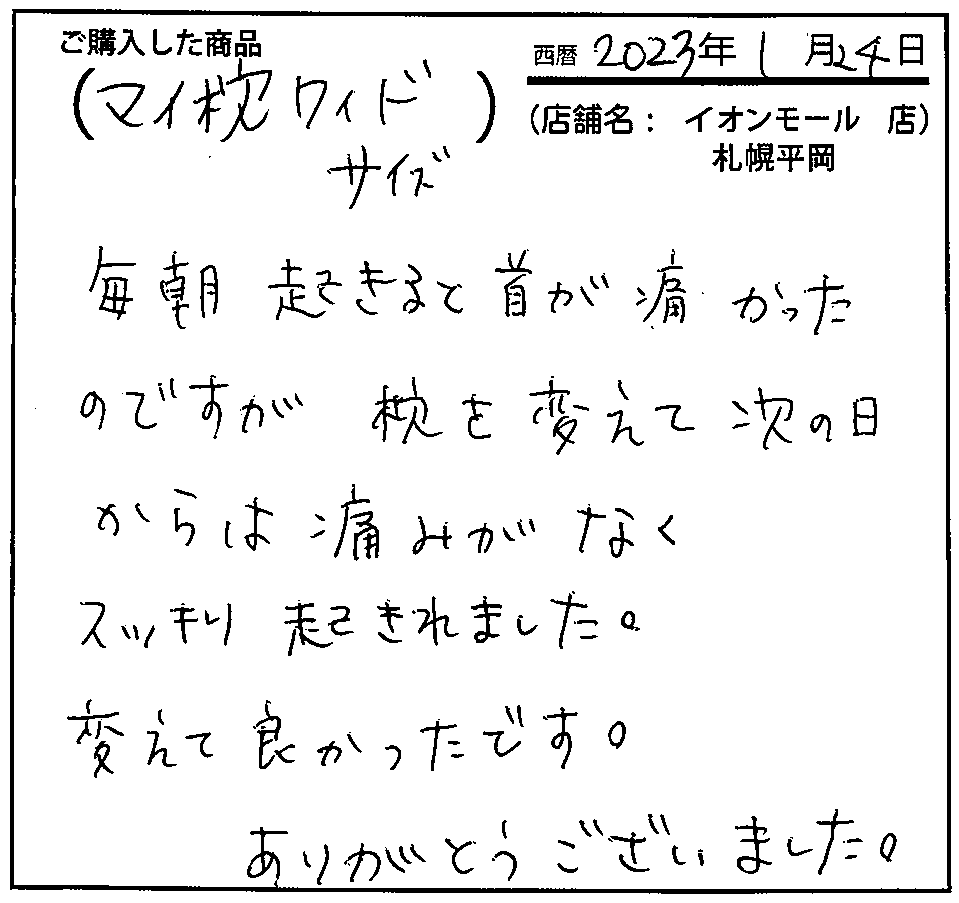 ご購入した商品
(マイ枕ワイド)
サイズ
西暦 2023年 1月24日
(店舗名： イオンモール 店)
札幌平岡
毎朝 起きると首が痛かった
のですが 枕を変えて次の日
からは痛みがなく
スッキリ起きれました。
変えて良かったです。
ありがとうございました。